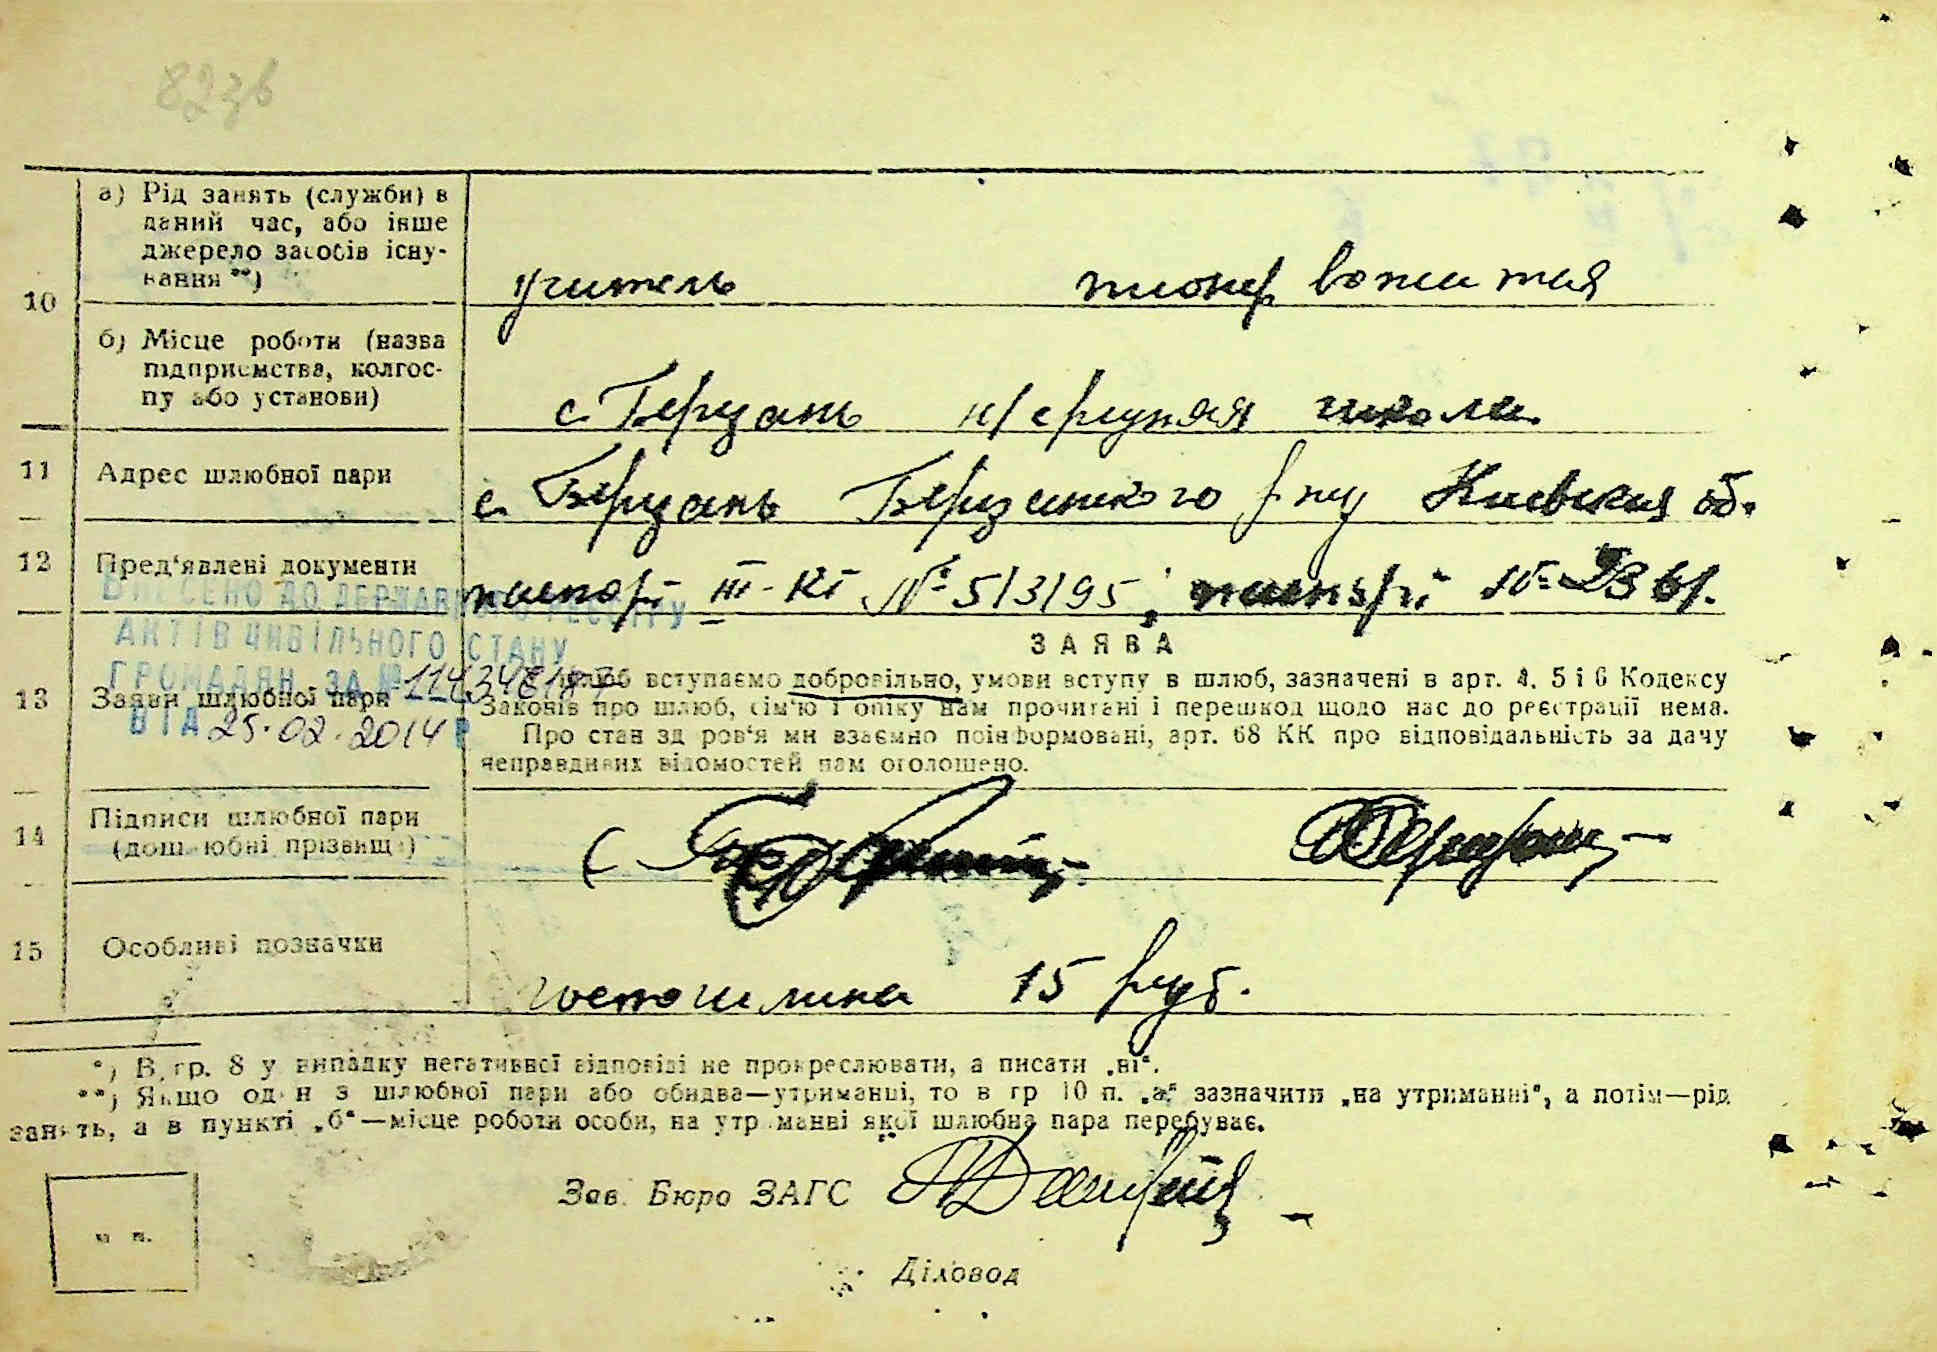 а) Рід занять (служби) в
даний час, або інше
джерело засобів існу-
вання **)
10
учитель пионер вожатая
б) Місце роботи (назва
підприємства, колгос-
пу або установи)
с. Березань средняя школа
11 Адрес шлюбної пари
с. Березань Березанского р-ну Киевская об.
12 Пред'явлені документи
паспорт III-КІ № 513195, паспорт №
ВНЕСЕНО ДО ДЕРЖАВНОГО РЕЄСТРУ
АКТІВ ЦИВІЛЬНОГО СТАНУ
ГРОМАДЯН ЗА №
ВІД 25.02.2014 Р
ЗАЯВА
13 Заяви шлюбної пари
шлюб вступаємо добровільно, умови вступу в шлюб, зазначені в арт. 4, 5 і 6 Кодексу
Законів про шлюб, сім'ю і опіку нам прочитані і перешкод щодо нас до реєстрації нема.
Про стан здоров'я ми взаємно поінформовані, арт. 68 КК про відповідальність за дачу
неправдивих відомостей нам оголошено.
14 Підписи шлюбної пари
(дошлюбні прізвища)
15 Особливі позначки
госпошлина 15 руб.
*) В гр. 8 у випадку негативної відповіді не прокреслювати, а писати „ні“.
**) Якщо один з шлюбної пари або обидва—утриманці, то в гр 10 п. „а“ зазначити „на утриманні“, а потім—рід
занять, а в пункті „б“—місце роботи особи, на утриманні якої шлюбна пара перебуває.
Зав. Бюро ЗАГС
м п.
Діловод